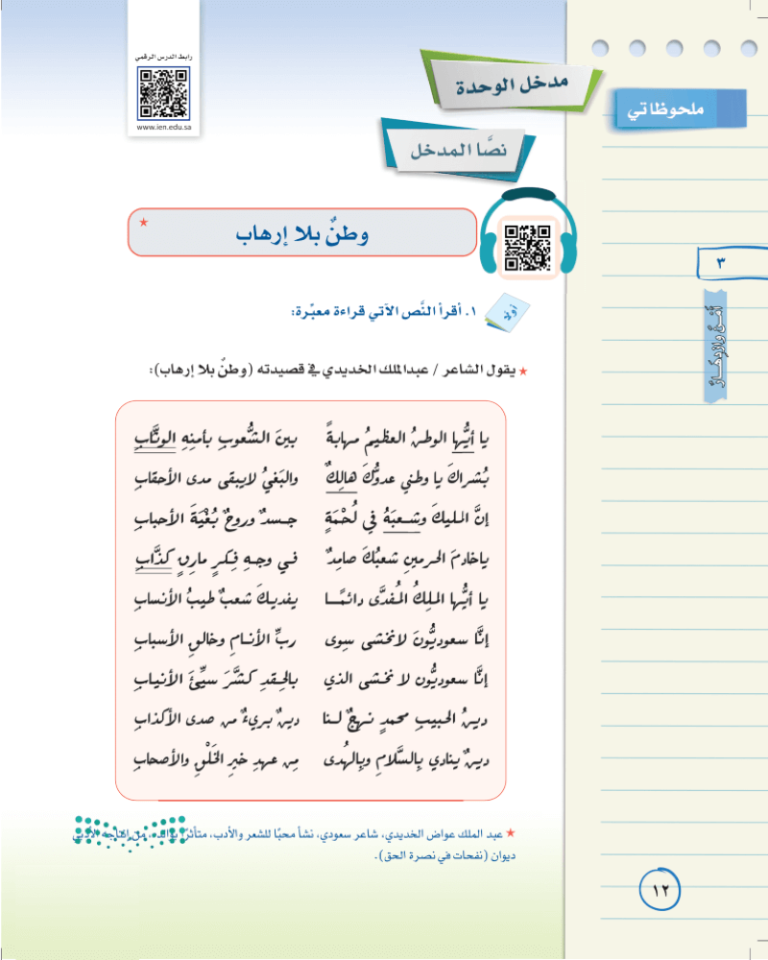 رابط الدرس الرقمي
www.ien.edu.sa
مدخل الوحدة
ملحوظاتي
نصَّا المدخل
وطنٌ بلا إرهاب
٣
أمنٌ وازدهارٌ
أولًا
١. أقرأ النَّص الآتي قراءة معبِّرة:
يقول الشاعر / عبدالملك الخديدي في قصيدته (وطنٌ بلا إرهاب):
يا أيُّها الوطنُ العظيمُ مهابةً بينَ الشُّعوبِ بأمنِهِ الوثَّابِ
بُشراكَ يا وطني عدوُّكَ هالِكٌ والبَغيُ لايبقى مدى الأحقابِ
إنَّ المليكَ وشعبَهُ في لُحْمَةٍ جسدٌ وروحٌ بُغْيَةَ الأحبابِ
ياخادمَ الحرمينِ شعبُكَ صامِدٌ في وجهِ فِكرٍ مارقٍ كذَّابِ
يا أيُّها الملِكُ المُفدَّى دائمًا يفديكَ شعبٌ طيبُ الأنسابِ
إنَّا سعوديُّونَ لانخشى سِوى ربِّ الأنامِ وخالقِ الأسبابِ
إنَّا سعوديُّون لا نخشى الذي بالحِقدِ كشَّرَ سيِّئَ الأنيابِ
دينُ الحبيبِ محمدٍ نهجٌ لنا دينٌ بريءٌ من صدى الأكذابِ
دينٌ ينادي بِالسَّلامِ وبِالهُدى مِن عهدِ خيرِ الخَلْقِ والأصحابِ
عبد الملك عواض الخديدي، شاعر سعودي، نشأ محبًا للشعر والأدب، متأثرًا بوالده، من إنتاجه الأدبي
ديوان (نفحات في نصرة الحق).
١٢